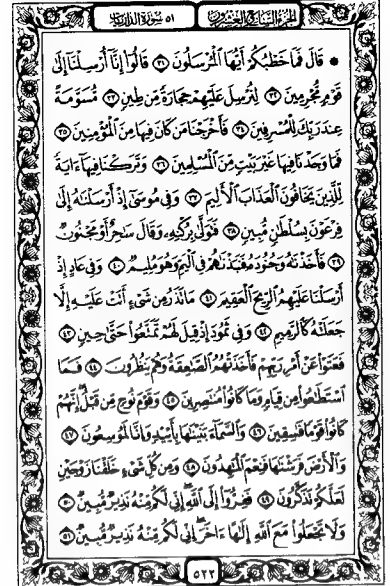 الجزء السابع والعشرون ٥١ سورة الذاريات
۞ قَالَ فَمَا خَطْبُكُمْ أَيُّهَا الْمُرْسَلُونَ ٣١ قَالُوا إِنَّا أُرْسِلْنَا إِلَىٰ
قَوْمٍ مُجْرِمِينَ ٣٢ لِنُرْسِلَ عَلَيْهِمْ حِجَارَةً مِنْ طِينٍ ٣٣ مُسَوَّمَةً
عِنْدَ رَبِّكَ لِلْمُسْرِفِينَ ٣٤ فَأَخْرَجْنَا مَنْ كَانَ فِيهَا مِنَ الْمُؤْمِنِينَ ٣٥
فَمَا وَجَدْنَا فِيهَا غَيْرَ بَيْتٍ مِنَ الْمُسْلِمِينَ ٣٦ وَتَرَكْنَا فِيهَا آيَةً
لِلَّذِينَ يَخَافُونَ الْعَذَابَ الْأَلِيمَ ٣٧ وَفِي مُوسَىٰ إِذْ أَرْسَلْنَاهُ إِلَىٰ
فِرْعَوْنَ بِسُلْطَانٍ مُبِينٍ ٣٨ فَتَوَلَّىٰ بِرُكْنِهِ وَقَالَ سَاحِرٌ أَوْ مَجْنُونٌ
٣٩ فَأَخَذْنَاهُ وَجُنُودَهُ فَنَبَذْنَاهُمْ فِي الْيَمِّ وَهُوَ مُلِيمٌ ٤٠ وَفِي عَادٍ إِذْ
أَرْسَلْنَا عَلَيْهِمُ الرِّيحَ الْعَقِيمَ ٤١ مَا تَذَرُ مِنْ شَيْءٍ أَتَتْ عَلَيْهِ إِلَّا
جَعَلَتْهُ كَالرَّمِيمِ ٤٢ وَفِي ثَمُودَ إِذْ قِيلَ لَهُمْ تَمَتَّعُوا حَتَّىٰ حِينٍ ٤٣
فَعَتَوْا عَنْ أَمْرِ رَبِّهِمْ فَأَخَذَتْهُمُ الصَّاعِقَةُ وَهُمْ يَنْظُرُونَ ٤٤ فَمَا
اسْتَطَاعُوا مِنْ قِيَامٍ وَمَا كَانُوا مُنْتَصِرِينَ ٤٥ وَقَوْمَ نُوحٍ مِنْ قَبْلُ إِنَّهُمْ
كَانُوا قَوْمًا فَاسِقِينَ ٤٦ وَالسَّمَاءَ بَنَيْنَاهَا بِأَيْيدٍ وَإِنَّا لَمُوسِعُونَ ٤٧
وَالْأَرْضَ فَرَشْنَاهَا فَنِعْمَ الْمَاهِدُونَ ٤٨ وَمِنْ كُلِّ شَيْءٍ خَلَقْنَا زَوْجَيْنِ
لَعَلَّكُمْ تَذَكَّرُونَ ٤٩ فَفِرُّوا إِلَى اللَّهِ إِنِّي لَكُمْ مِنْهُ نَذِيرٌ مُبِينٌ ٥٠
وَلَا تَجْعَلُوا مَعَ اللَّهِ إِلَٰهًا آخَرَ إِنِّي لَكُمْ مِنْهُ نَذِيرٌ مُبِينٌ ٥١
٥٢٢